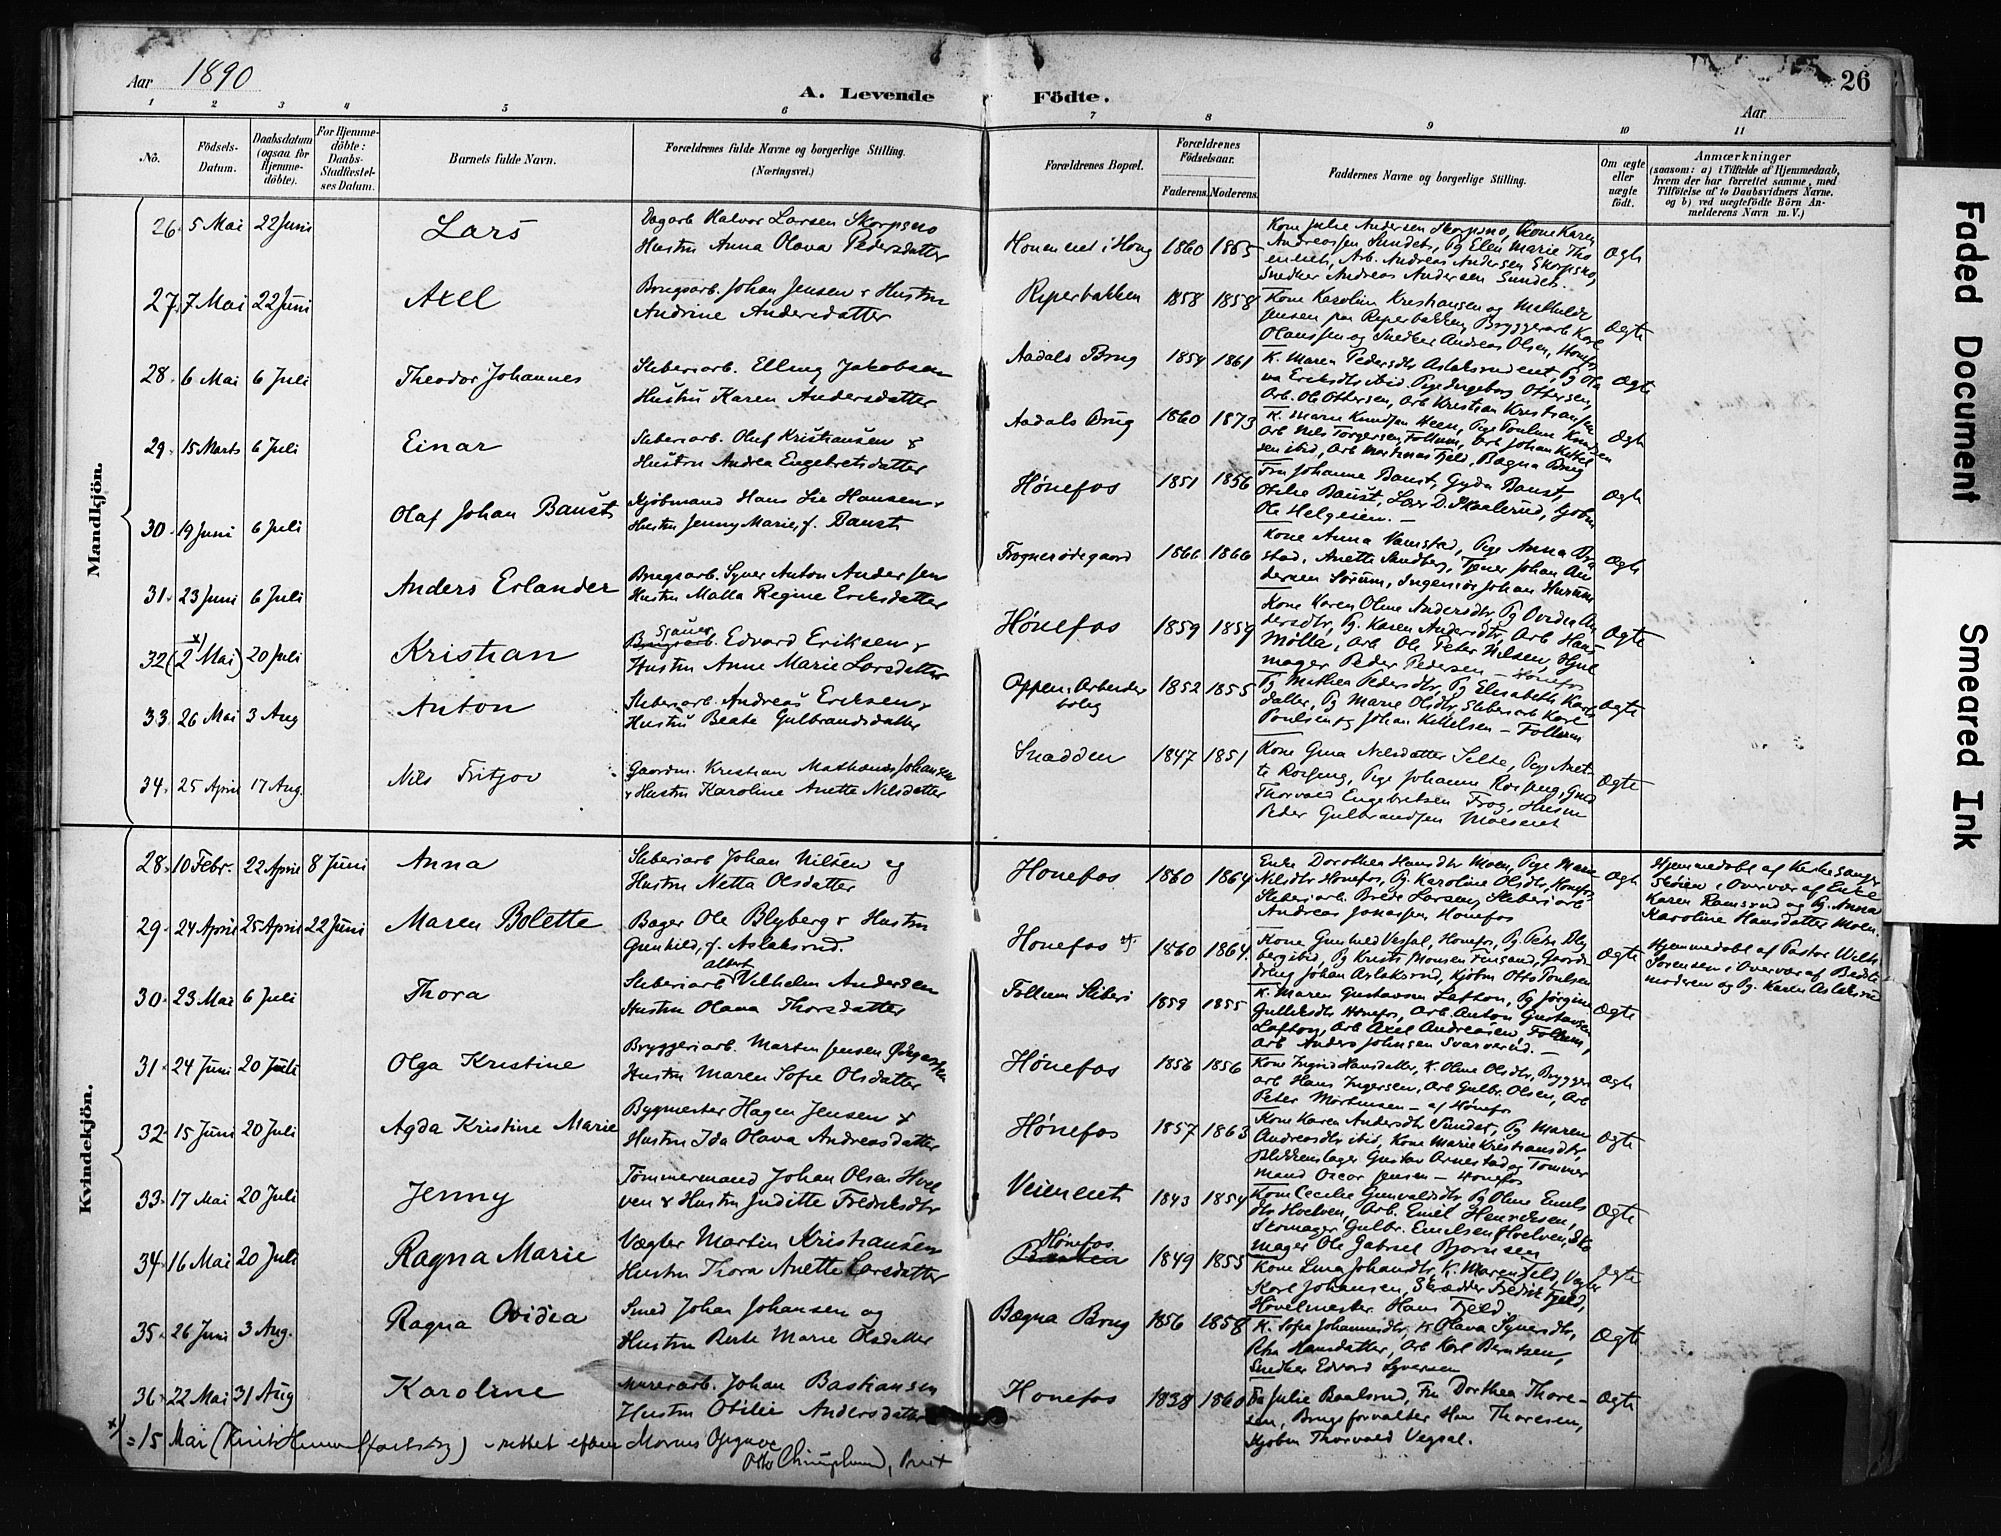 Aar 1890
A. Levende Födte.
26
Aar
1 2 3 4 5 6 7 8 9 10 11
No.
Födsels-Datum.
Daabsdatum (ogsaa for Hjemme-döbte).
For Hjemme-döbte: Daabs-Stadfæstel-ses Datum.
Barnets fulde Navn.
Forældrenes fulde Navne og borgerlige Stilling.
(Næringsvei.)
Forældrenes Bopæl.
Forældrenes Födselsaar.
Faderens. Moderens.
Faddernes Navne og borgerlige Stilling.
Om ægte eller uægte födt.
Anmærkninger
(saasom: a) i Tilfælde af Hjemmedaab,
hvem der har forrettet samme, med
Tilföielse af to Daabsvidners Navne.
og b) ved uægtefödte Börn An-
melderens Navn m. V.)
Mandkjön.
26. 5 Mai 22 Juni Lars
Dagarb Halvor Larsen Skorpsno
Hustru Anna Olava Pedersdatter
1860 1865
Kone Julie Andersen Skorpsno, Kone Karen
Andreassen Sundet, Pg Elen Marie
Arb. Andreas Andersen Skorpsno,
Snedker Andreas Andersen Sundet.
Ægte
27. 7 Mai 22 Juni Axel
Brugsarb. Johan Jensen & Hustru
Andrine Andersdatter
Riperbakken 1858 1858
Kone Karoline Kristiansen og Mathilde
Jensen paa Riperbakken, Bryggeriarb Karl
Olaussen og Snedker Andreas Olsen, Honefos
Ægte
28. 6 Mai 6 Juli Theodor Johannes
Sliberiarb. Elling Jakobsen
Hustru Karen Andersdatter
Aadals Brug 1854 1861
K. Maren Pedersdtr Aslaksrudeiet, Pg Ola
va Eriksdtr ibid. Pige Ingeborg Ottersen,
Arb. Ole Ottersen, Arb Kristian Kristiansen
Ægte
29. 15 Marts 6 Juli Einar
Sliberiarb. Oluf Kristiansen &
Hustru Andrea Engebretsdatter
Aadals Brug 1860 1873
K. Maren Knudsen Heen, Pige Pouline Knudsen
Arb Nils Torgersen Follum, Arb Johan Kittel
sen ibid, Arb Martinus Fjeld, Bægna Brug
Ægte
30. 19 Juni 6 Juli Olaf Johan Baust
Kjöbmand Hans Lie Hansen &
Hustru Jenny Marie, f. Baust
Hønefos 1851 1856
Fru Johanne Baust, Gyda Baust,
Otilie Baust, Lærr D. Skaalerud, Kjöbm
Ole Helgesen. —
Ægte
31. 23 Juni 6 Juli Anders Erlander
Brugsarb. Syver Anton Andersen
Hustru Malla Regine Eriksdatter
Frognerødegaard 1866 1866
Kone Anna Vamstad, Pige Anna By
stad, Anette Sandberg, Tjener Johan An
dersen Sörum, Ingeniör Johan Hurum
Ægte
32 (2 Mai) x) 20 Juli Kristian
Sjauer
Brugsarb. Edvard Eriksen &
Hustru Anne Marie Larsdatter
Hønefos 1859 1859
Kone Karen Oline Andersdtr, Pg Ovidia An
dersdtr, Pg. Karen Andersdtr, Arb Hans
Mölla, Arb Ole Peter Nilsen, Hjul
mager Peder Pedersen — Hönefos
Ægte
33. 26 Mai 3 Aug Anton
Sliberiarb. Andreas Eriksen &
Hustru Beate Gulbrandsdatter
Oppen, Arbeider
bolig
1852 1855
Pg Mathea Pedersdtr, Pg Elisabeth Karls
datter, Pg Marie Olsdtr, Sliberiarb Karl
Poulsen og Johan Kittelsen — Follum
Ægte
34. 25 April 17 Aug. Nils Fritjov
Gaardm. Kristian Mathæus Johansen
& Hustru Karoline Anette Nilsdatter
Snadden 1847 1851
Kone Gina Nilsdatter Selte, Pige Anet
te Roseng, Pige Johanne Roseng, Gmd
Thorvald Engebretsen Frog, Husm
Peder Gulbrandsen Moeseiet
Ægte
Kvindekjön.
28. 10 Febr. 22 April 8 Juni Anna
Sliberiarb Johan Nilsen og
Hustru Netta Olsdatter
Hönefos 1860 1864
Enke Dorothea Hansdtr Moen, Pige Marie
Nilsdtr Hönefos, Pg. Karoline Olsdtr, Hönefos
Sliberiarb. Brede Larsen, Sliberiarb
Andreas Jonassen Hönefos
Ægte
Hjemmedöbt af Kirkesanger
Sköien i Overvær af Enke
Karen Ramsrud og Pg. Anna
Karoline Hansdatter Moen.
29. 24 April 25 April 22 Juni Maren Bolette
Bager Ole Blyberg & Hustru
Gunhild, f. Aslaksrud.
Hönefos 1860 1864.
Kone Gunhild Vegsal, Hönefos, Pg. Petra Bly
berg ibid, Pg Kristi Monsen Finsand, Gaard
dreng Johan Aslaksrud, Kjöbm Otto Poulsen
Ægte
Hjemmedöbt af Pastor Wilh
Sörensen i Overvær af Bedste
moderen og Pg. Karen Aslaksrud
30. 23 Mai 6 Juli Thora
Albert
Sliberiarb Vilhelm Andersen
Hustru Olava Thorsdatter
Follum Sliberi 1859 1855
K. Maren Gustavsen Lafton, Pg Jörgine
Gulliksdtr Hönefos, Arb. Anton Gustavsen
Lafton, Arb Axel Andreasen, Follum,
Arb Anders Johnsen Svarverud. —
Ægte
31. 24 Juni 20 Juli Olga Kristine
Bryggeriarb. Martin Jensen
Hustru Maren Sofie Olsdatter
Hønefos 1856 1856
Kone Ingrid Hansdatter, K. Oline Olsdtr, Brygger
arb Hans Ingersen, Arb Gulbr. Olsen, Arb
Peter Mortensen — af Hönefos
Ægte
32. 15 Juni 20 Juli Agda Kristine Marie
Bygmester Hagen Jensen &
Hustru Ida Olava Andreasdatter
Hønefos 1857 1863
Kone Karen Andersdtr Sundet, Pg Maren
Andreasdtr ibid, Kone Marie Kristiansdtr,
Blikkenslager Gustav Arnestad og Tömmer
mand Oscar Jensen — Hönefos
Ægte
33. 17 Mai 20 Juli Jenny
Tömmermand Johan Olsen Hvel
ven & Hustru Juditte Fredriksdtr
Veieneiet 1843 1854
Kone Cecilie Gunvaldsdtr, Pg Oline Emils
dtr Hvelven, Arb. Emil Henriksen,
Skomager Gulbr. Emilsen Hvelven, Sko
mager Ole Gabriel Bjornsen
Ægte
34. 16 Mai 20 Juli Ragna Marie
Vægter Martin Kristiansen
Hustru Thora Anette Larsdatter
Hønefos
1849 1855
Kone Lina Johansdtr, K. Maren Fjeld, Vægter
Karl Johansen, Skrædder Fredrik Fjeld,
Hövelmester Hans Fjeld.
Ægte
35. 26 Juni 3 Aug. Ragna Ovidia
Smed Johan Johansen og
Hustru Berte Marie Olsdatter
Bægna Brug 1856 1858
K. Sofie Johannesdtr, K Olava Syversdtr,
Hansdatter, Arb Karl Berntsen,
Snedker Edvard Syversen
Ægte
36. 22 Mai 31 Aug Karoline
Murerarb. Johan Bastiansen
Hustru Otilie Andersdatter
Honefos 1838 1860
Fru Julie Raalsrud, Fru Dorthea Thore-
sen, Brugsforvalter Hans Thoresen,
Kjöbm Thorvald Vegsal.
Ægte
x) = 15 Mai (Kristi Himmelfartsdag) — rettet efter Morens Opgave
Prest
Faded Document
Smeared Ink